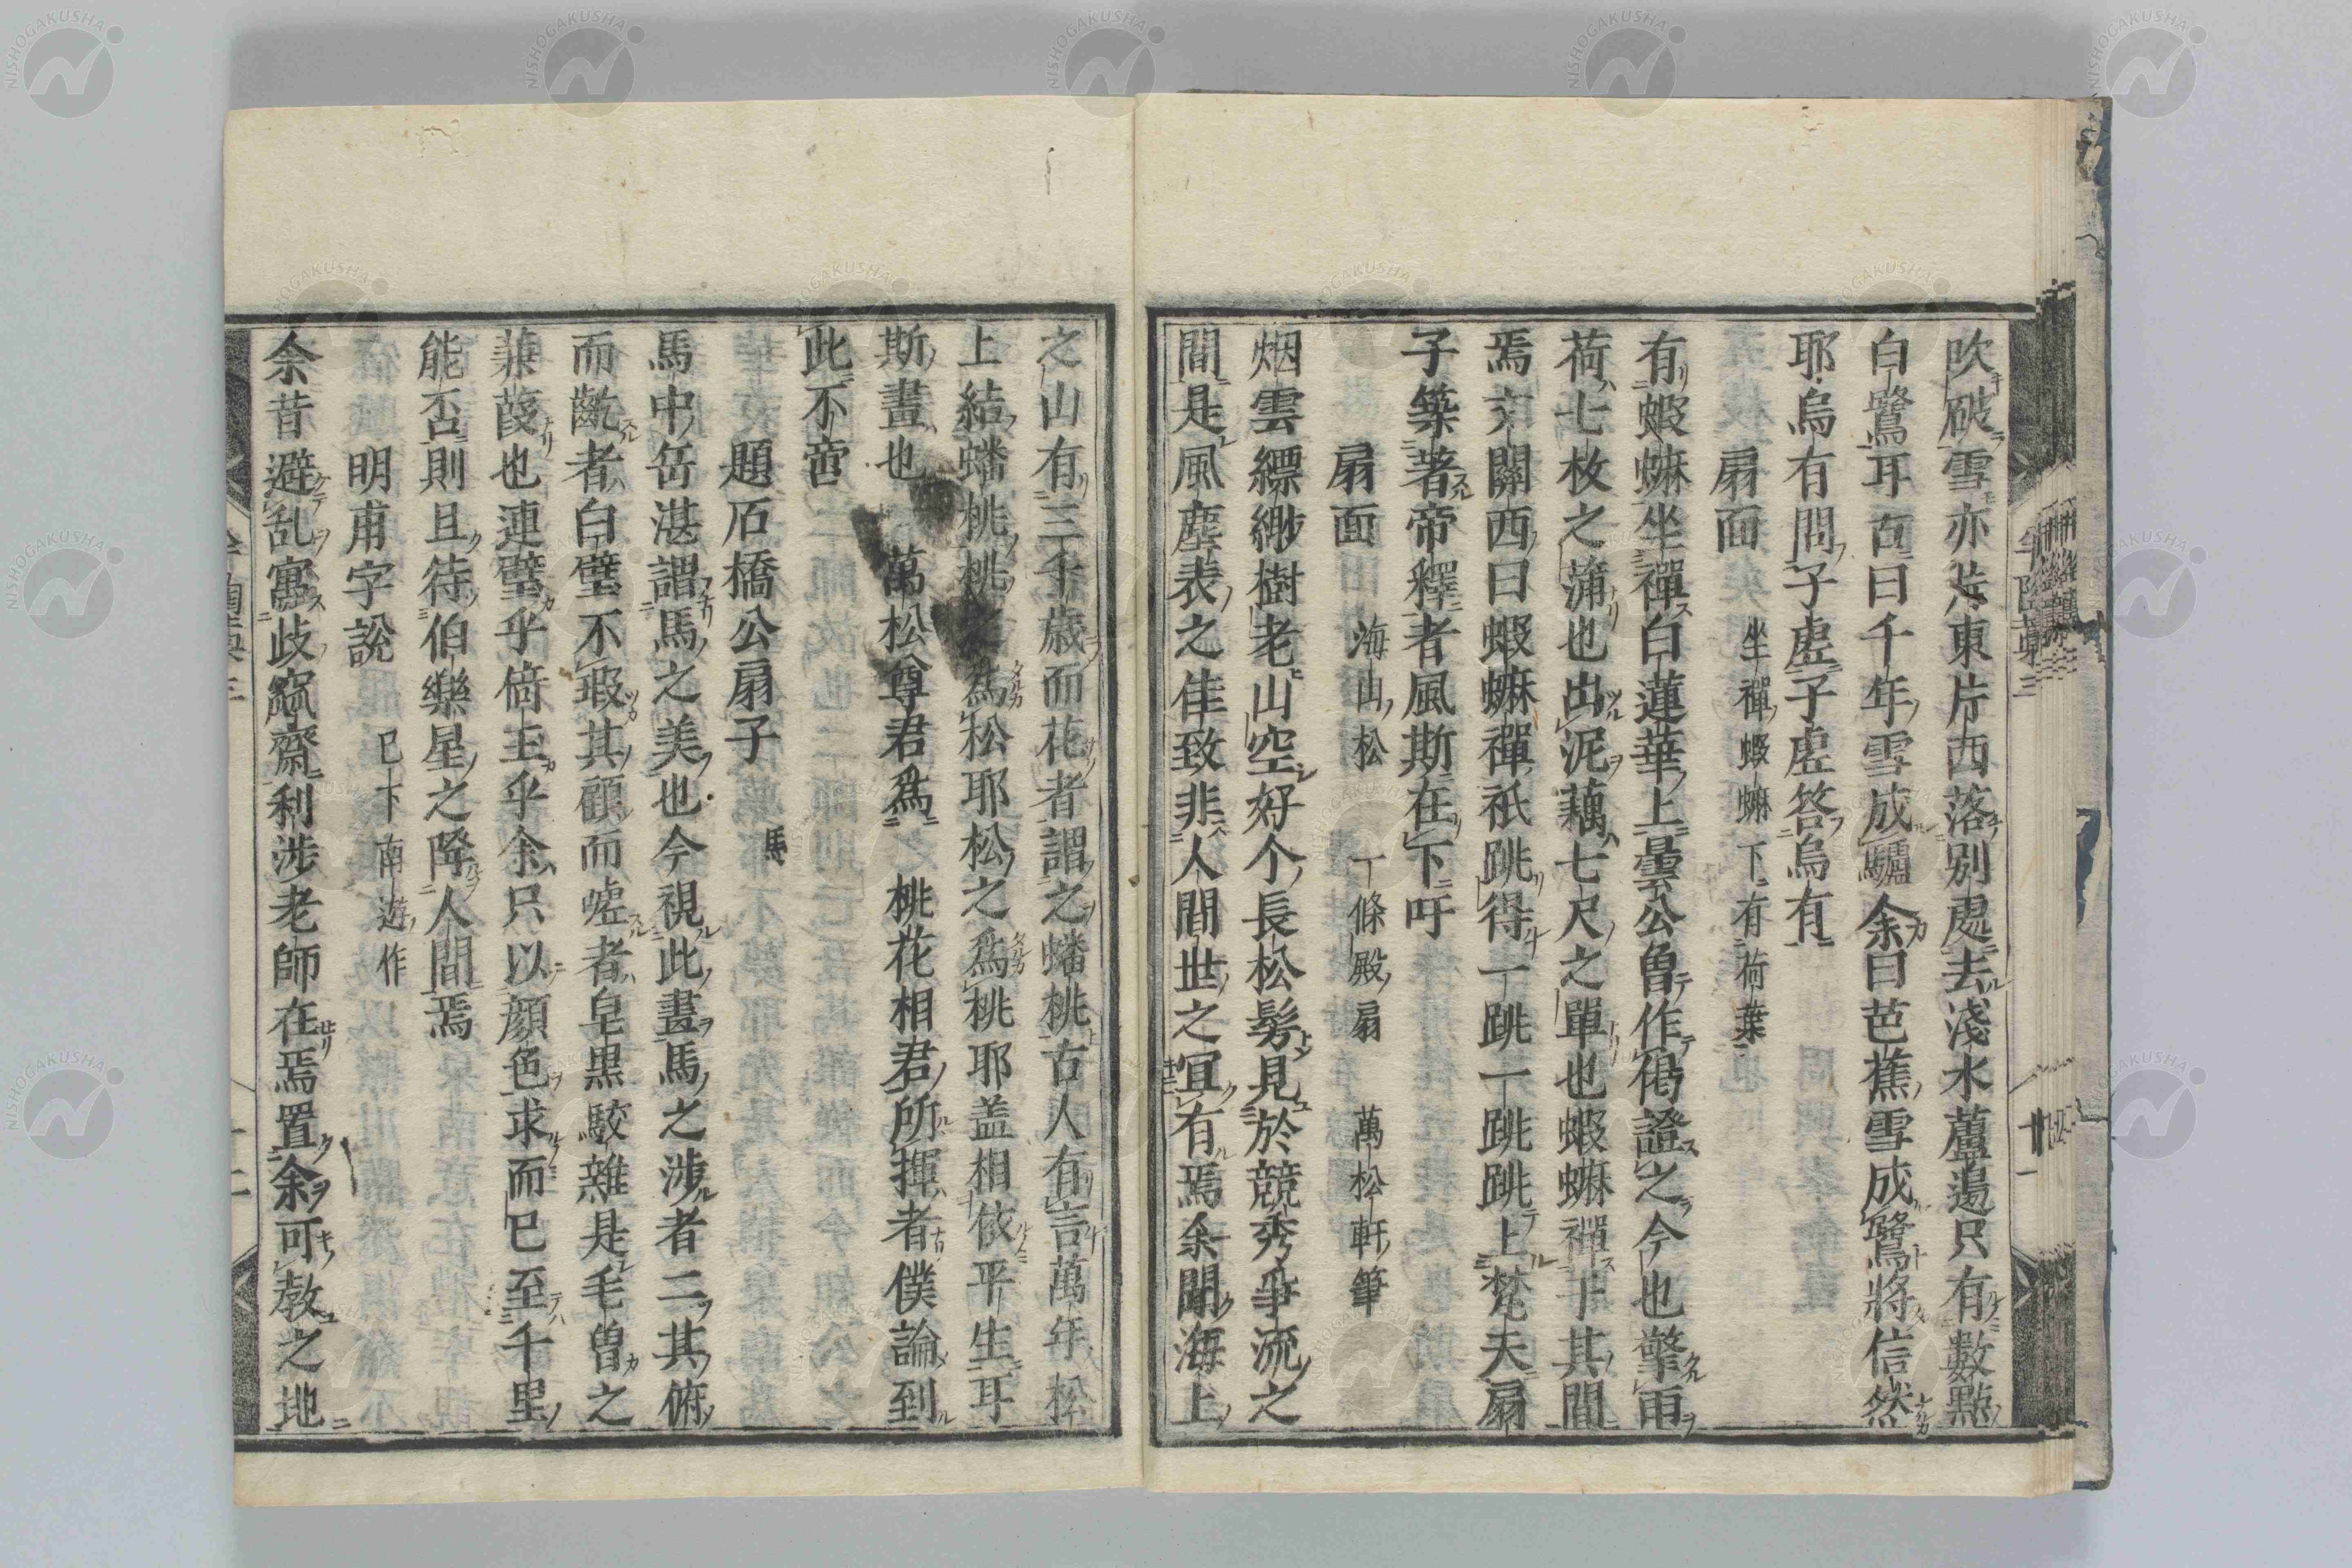 吹破雪亦片東片西落別處去淺水蘆邊只有數點
白鷺耳有曰千年雪成驢余曰芭蕉雪成鷺將信然
耶烏有問子虛子虛答烏有
扇面 坐禪蝦蟆下有荷葉
有蝦蟆坐禪白蓮華上曇公曾作偈證之今也擎雨
荷七枚之蒲也出泥藕七尺之單也蝦蟆禪于其間
焉玄關西曰蝦蟆禪祇跳得一跳一跳跳上梵天扇
子築著帝釋者風斯在下吁
扇面 海山松 一條殿扇 萬松軒筆
烟雲縹緲樹老山空好个長松髣見於競秀爭流之
間是風塵表之佳致非人間世之宜有焉余聞海上
之山有三千歲而花者謂之蟠桃古人有言萬年松
上結蟠桃桃之為松耶松之為桃耶盖相依平生耳
斯畫也 萬松尊君為 桃花相君所揮者僕論到
此不啻
題石橋公扇子 馬
馬中岳湛謂馬之美也今視此畫馬之涉者二其俯
而齕者白璧不瑕其顧而嘘者皂黒駮雜是毛曾之
蒹葭也連璧乎倚玉乎余只以顔色求而已至千里
能否則且待伯樂星之降人間焉
明甫字說 已下南遊作
余昔避乱寓岐竄齋利涉老師在焉置余可教之地
三
廿一